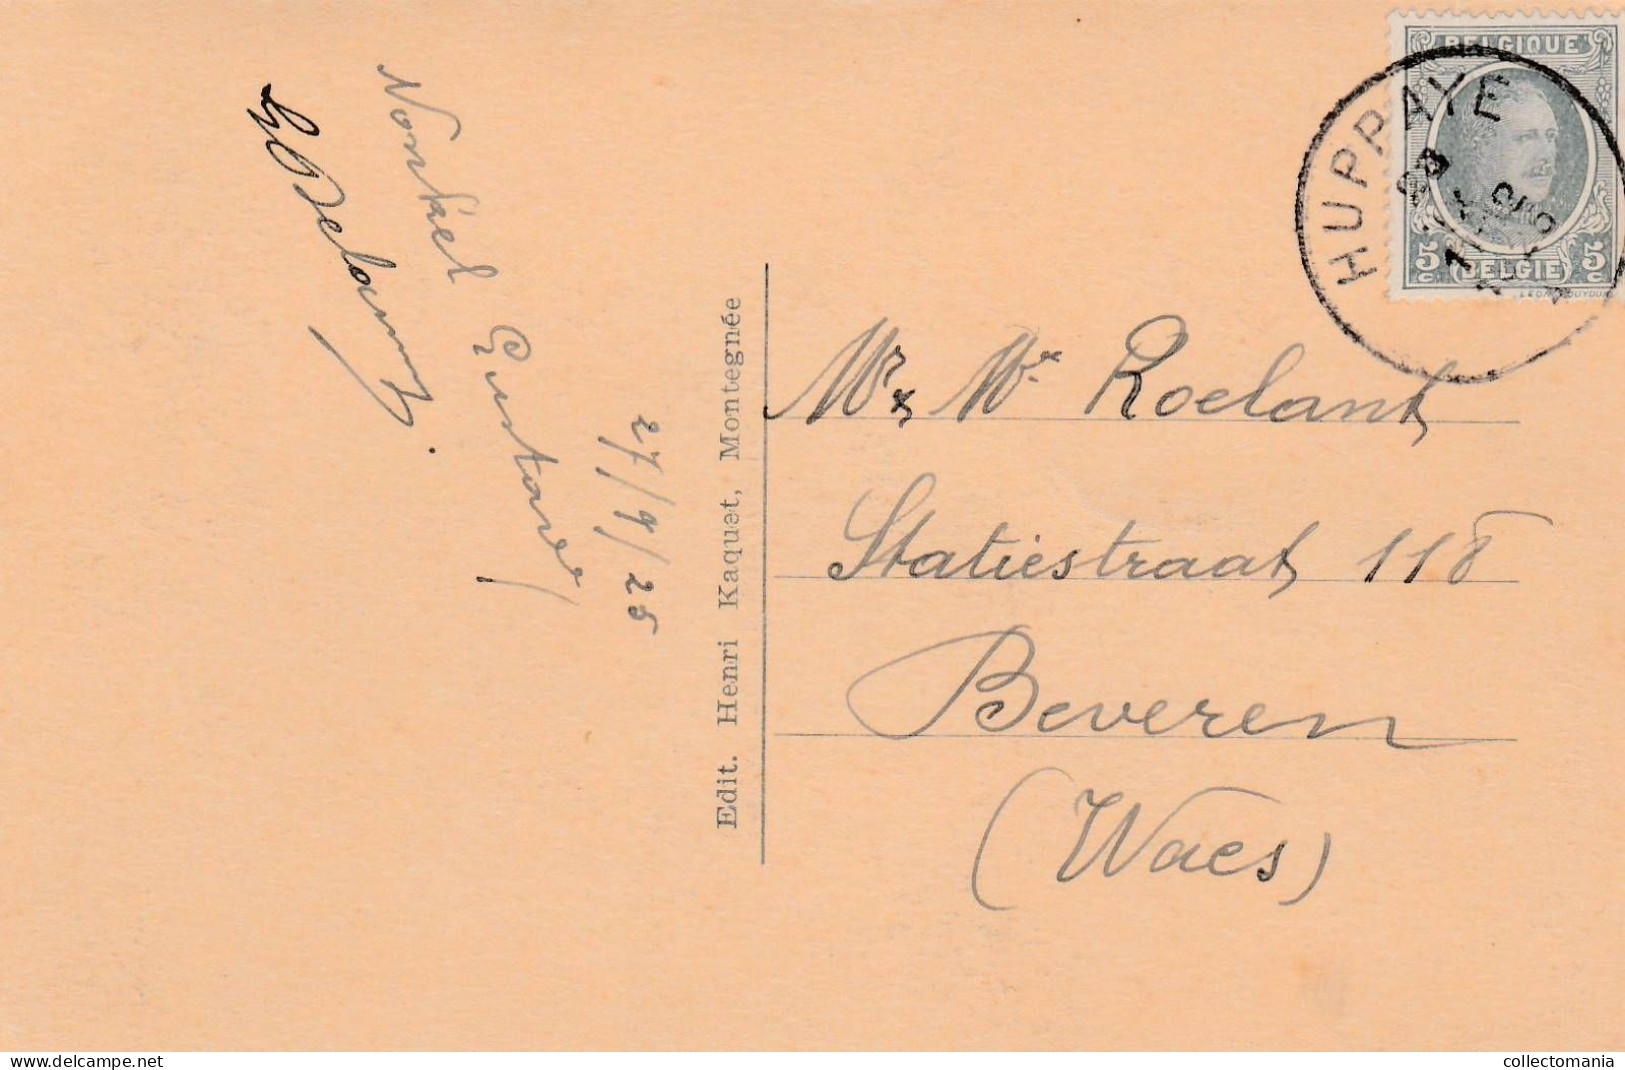 Nonkel
Gustave
27/9/25
Edit. Henri Kaquet, Montegnée
BELGIQUE
5 c BELGIE 5 c
HUPPAYE
Mr & Me Roelant
Statiestraat 118
Beveren
(Waes)
delcampe.net
collectomania